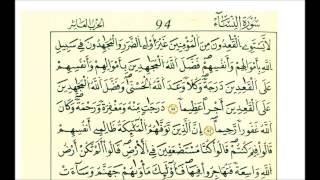 سُورَةُ النِّسَاءِ 94 الحزب العاشر
لَّا يَسْتَوِي الْقَٰعِدُونَ مِنَ الْمُؤْمِنِينَ غَيْرَ أُوْلِي الضَّرَرِ وَالْمُجَٰهِدُونَ فِي سَبِيلِ
اللَّهِ بِأَمْوَٰلِهِمْ وَأَنفُسِهِمْ فَضَّلَ اللَّهُ الْمُجَٰهِدِينَ بِأَمْوَٰلِهِمْ وَأَنفُسِهِمْ
عَلَى الْقَٰعِدِينَ دَرَجَةً وَكُلًّا وَعَدَ اللَّهُ الْحُسْنَىٰ وَفَضَّلَ اللَّهُ الْمُجَٰهِدِينَ
عَلَى الْقَٰعِدِينَ أَجْرًا عَظِيمًا دَرَجَٰتٍ مِّنْهُ وَمَغْفِرَةً وَرَحْمَةً وَكَانَ
اللَّهُ غَفُورًا رَّحِيمًا إِنَّ الَّذِينَ تَوَفَّىٰهُمُ الْمَلَٰئِكَةُ ظَالِمِي أَنفُسِهِمْ
قَالُوا فِيمَ كُنتُمْ قَالُوا كُنَّا مُسْتَضْعَفِينَ فِي الْأَرْضِ قَالُوا أَلَمْ تَكُنْ أَرْضُ
اللَّهِ وَٰسِعَةً فَتُهَاجِرُوا فِيهَا فَأُوْلَٰئِكَ مَأْوَىٰهُمْ جَهَنَّمُ وَسَاءَتْ